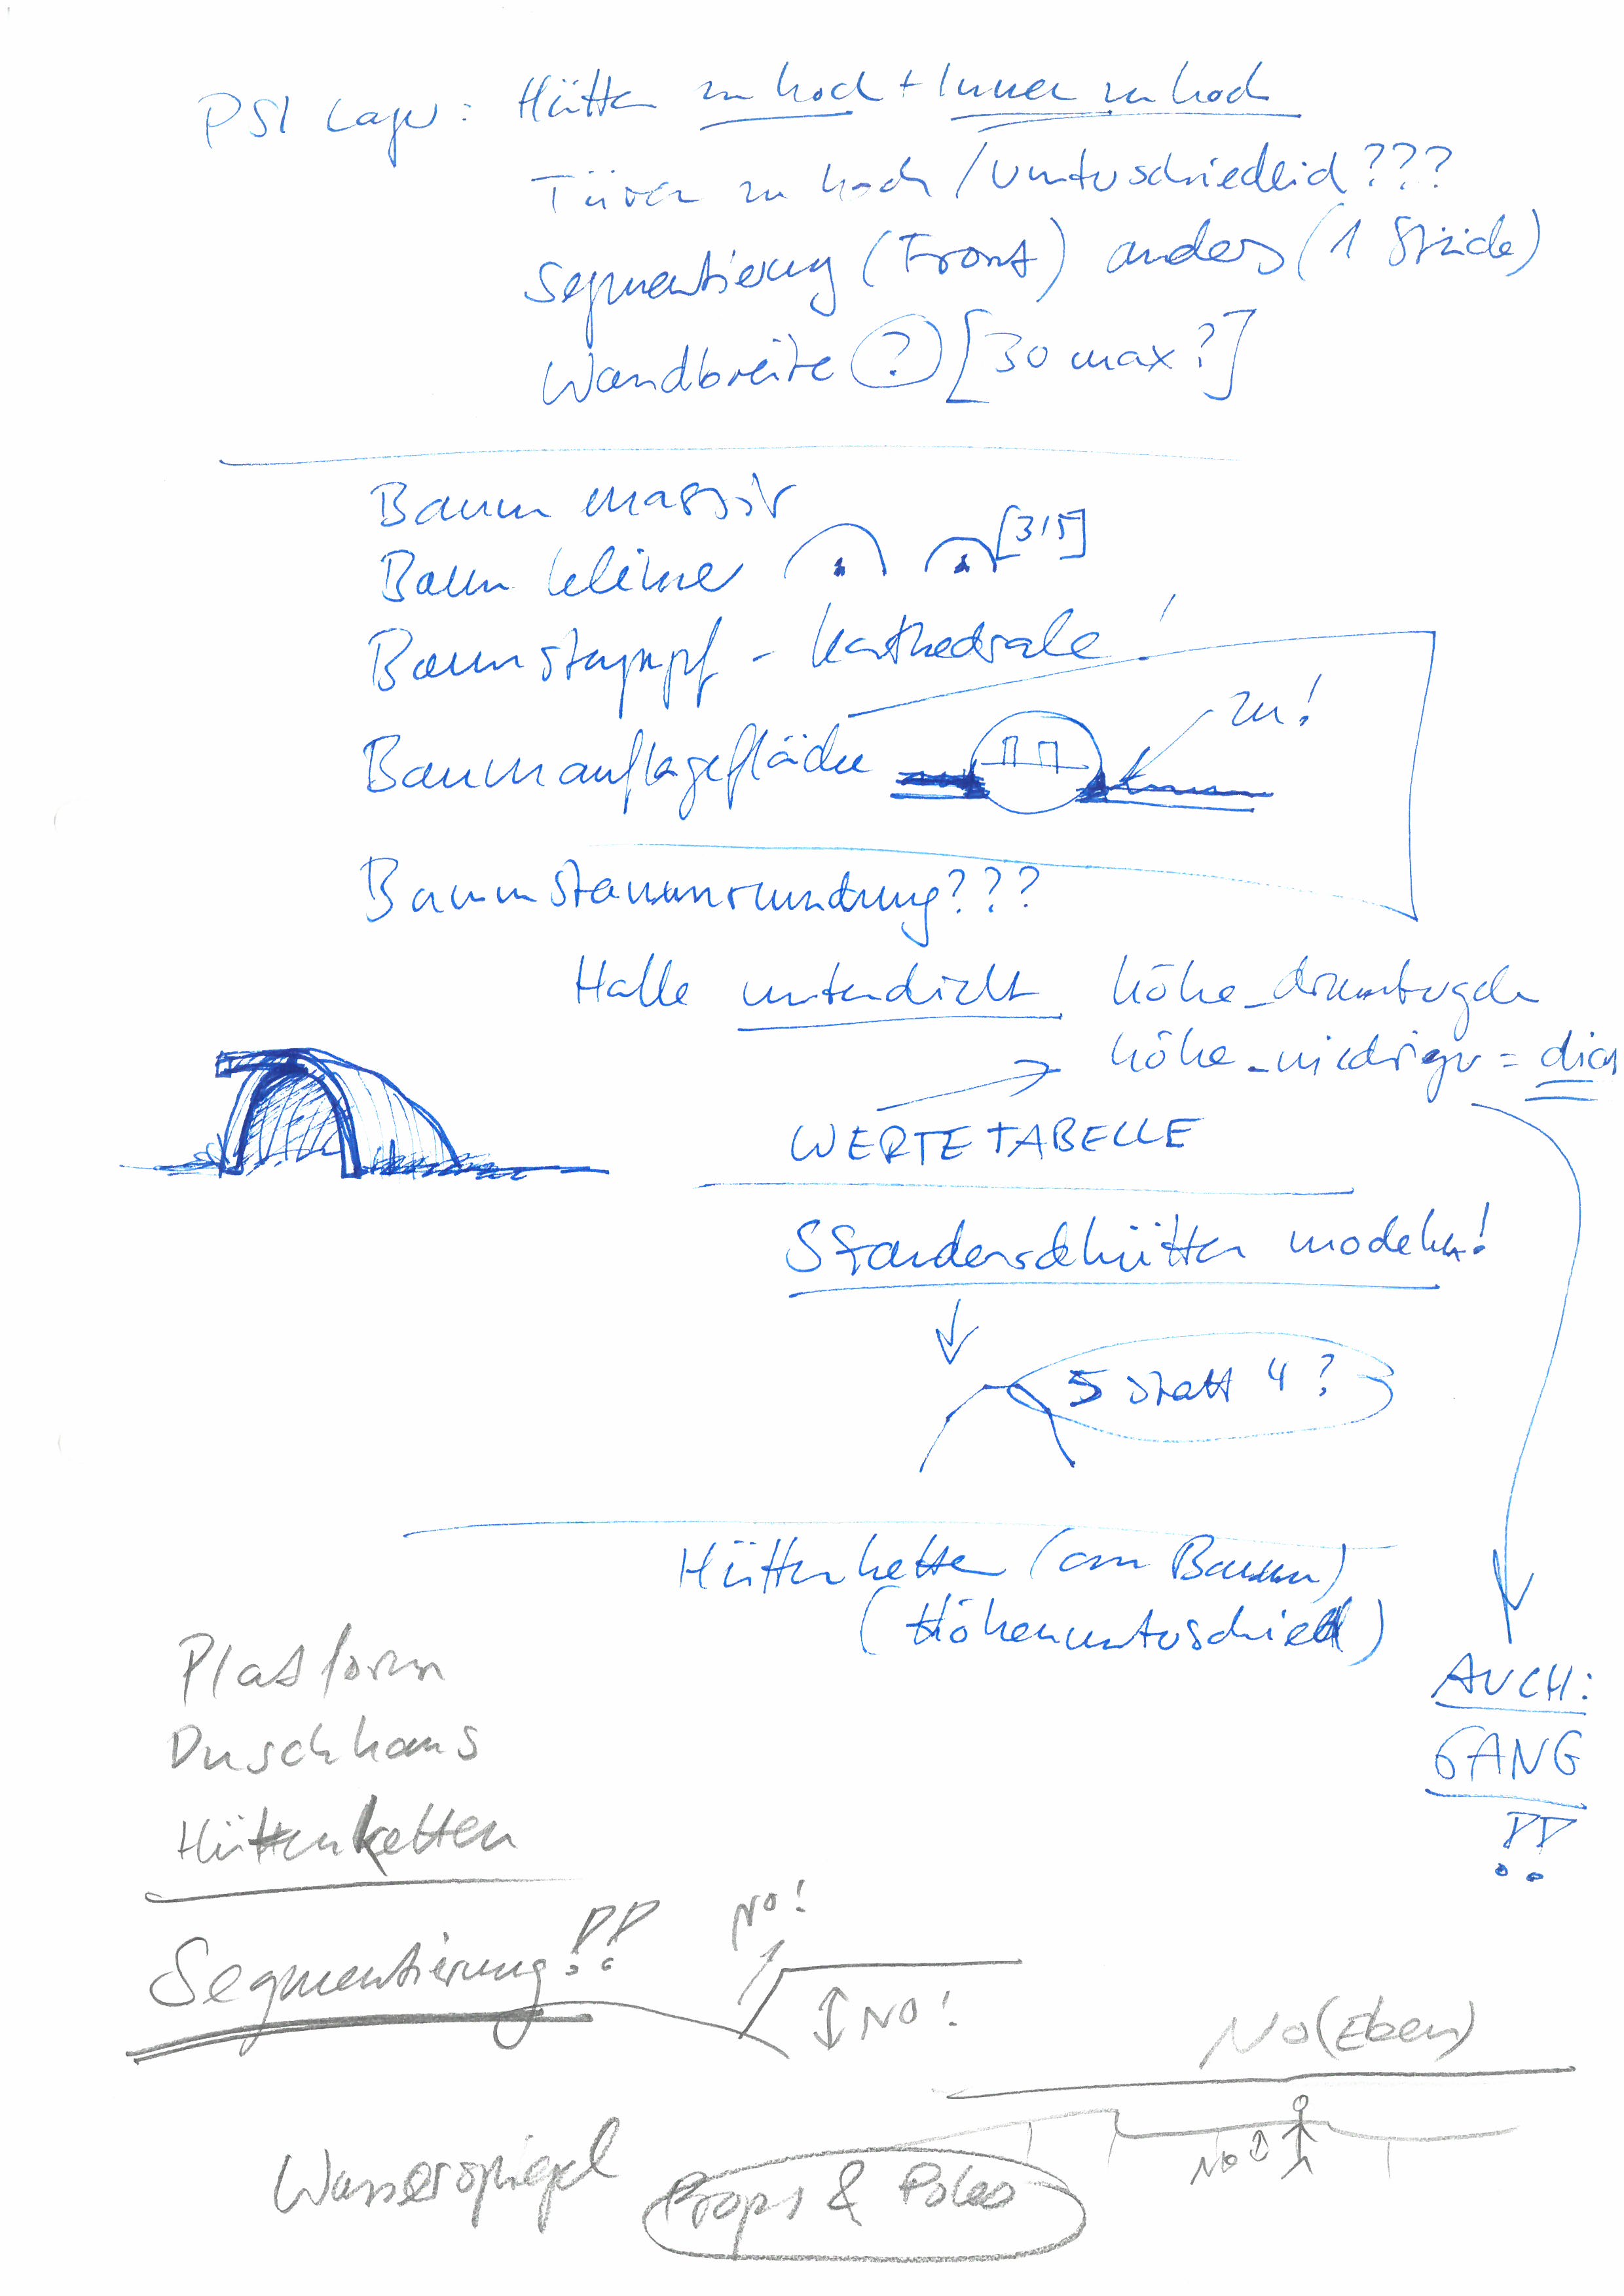 PSI Lager: Hütten zu hoch + Innen zu hoch
Türen zu hoch / Unterschiedlich???
Segmentierung (Front) anders (1 Stück)
Wandbreite ? [30 max?]
Baum massiv
Baum kleiner [3/5]
Baumstumpf - Kathedrale!
Baumauflagefläche zu!
Baumstammrundung???
Halle unterdicht höhe_drunter
höhe_niedriger =
WERTETABELLE
Standardhütten modeln!
5 statt 4?
Hüttenkette (am Baum)
(Höhenunterschied)
Platform
Duschhaus
Hüttenketten
AUCH:
GANG
!!
Segmentierung!!
NO!
NO!
NO (Eben)
NO
Wasserspiegel
Props & Polys